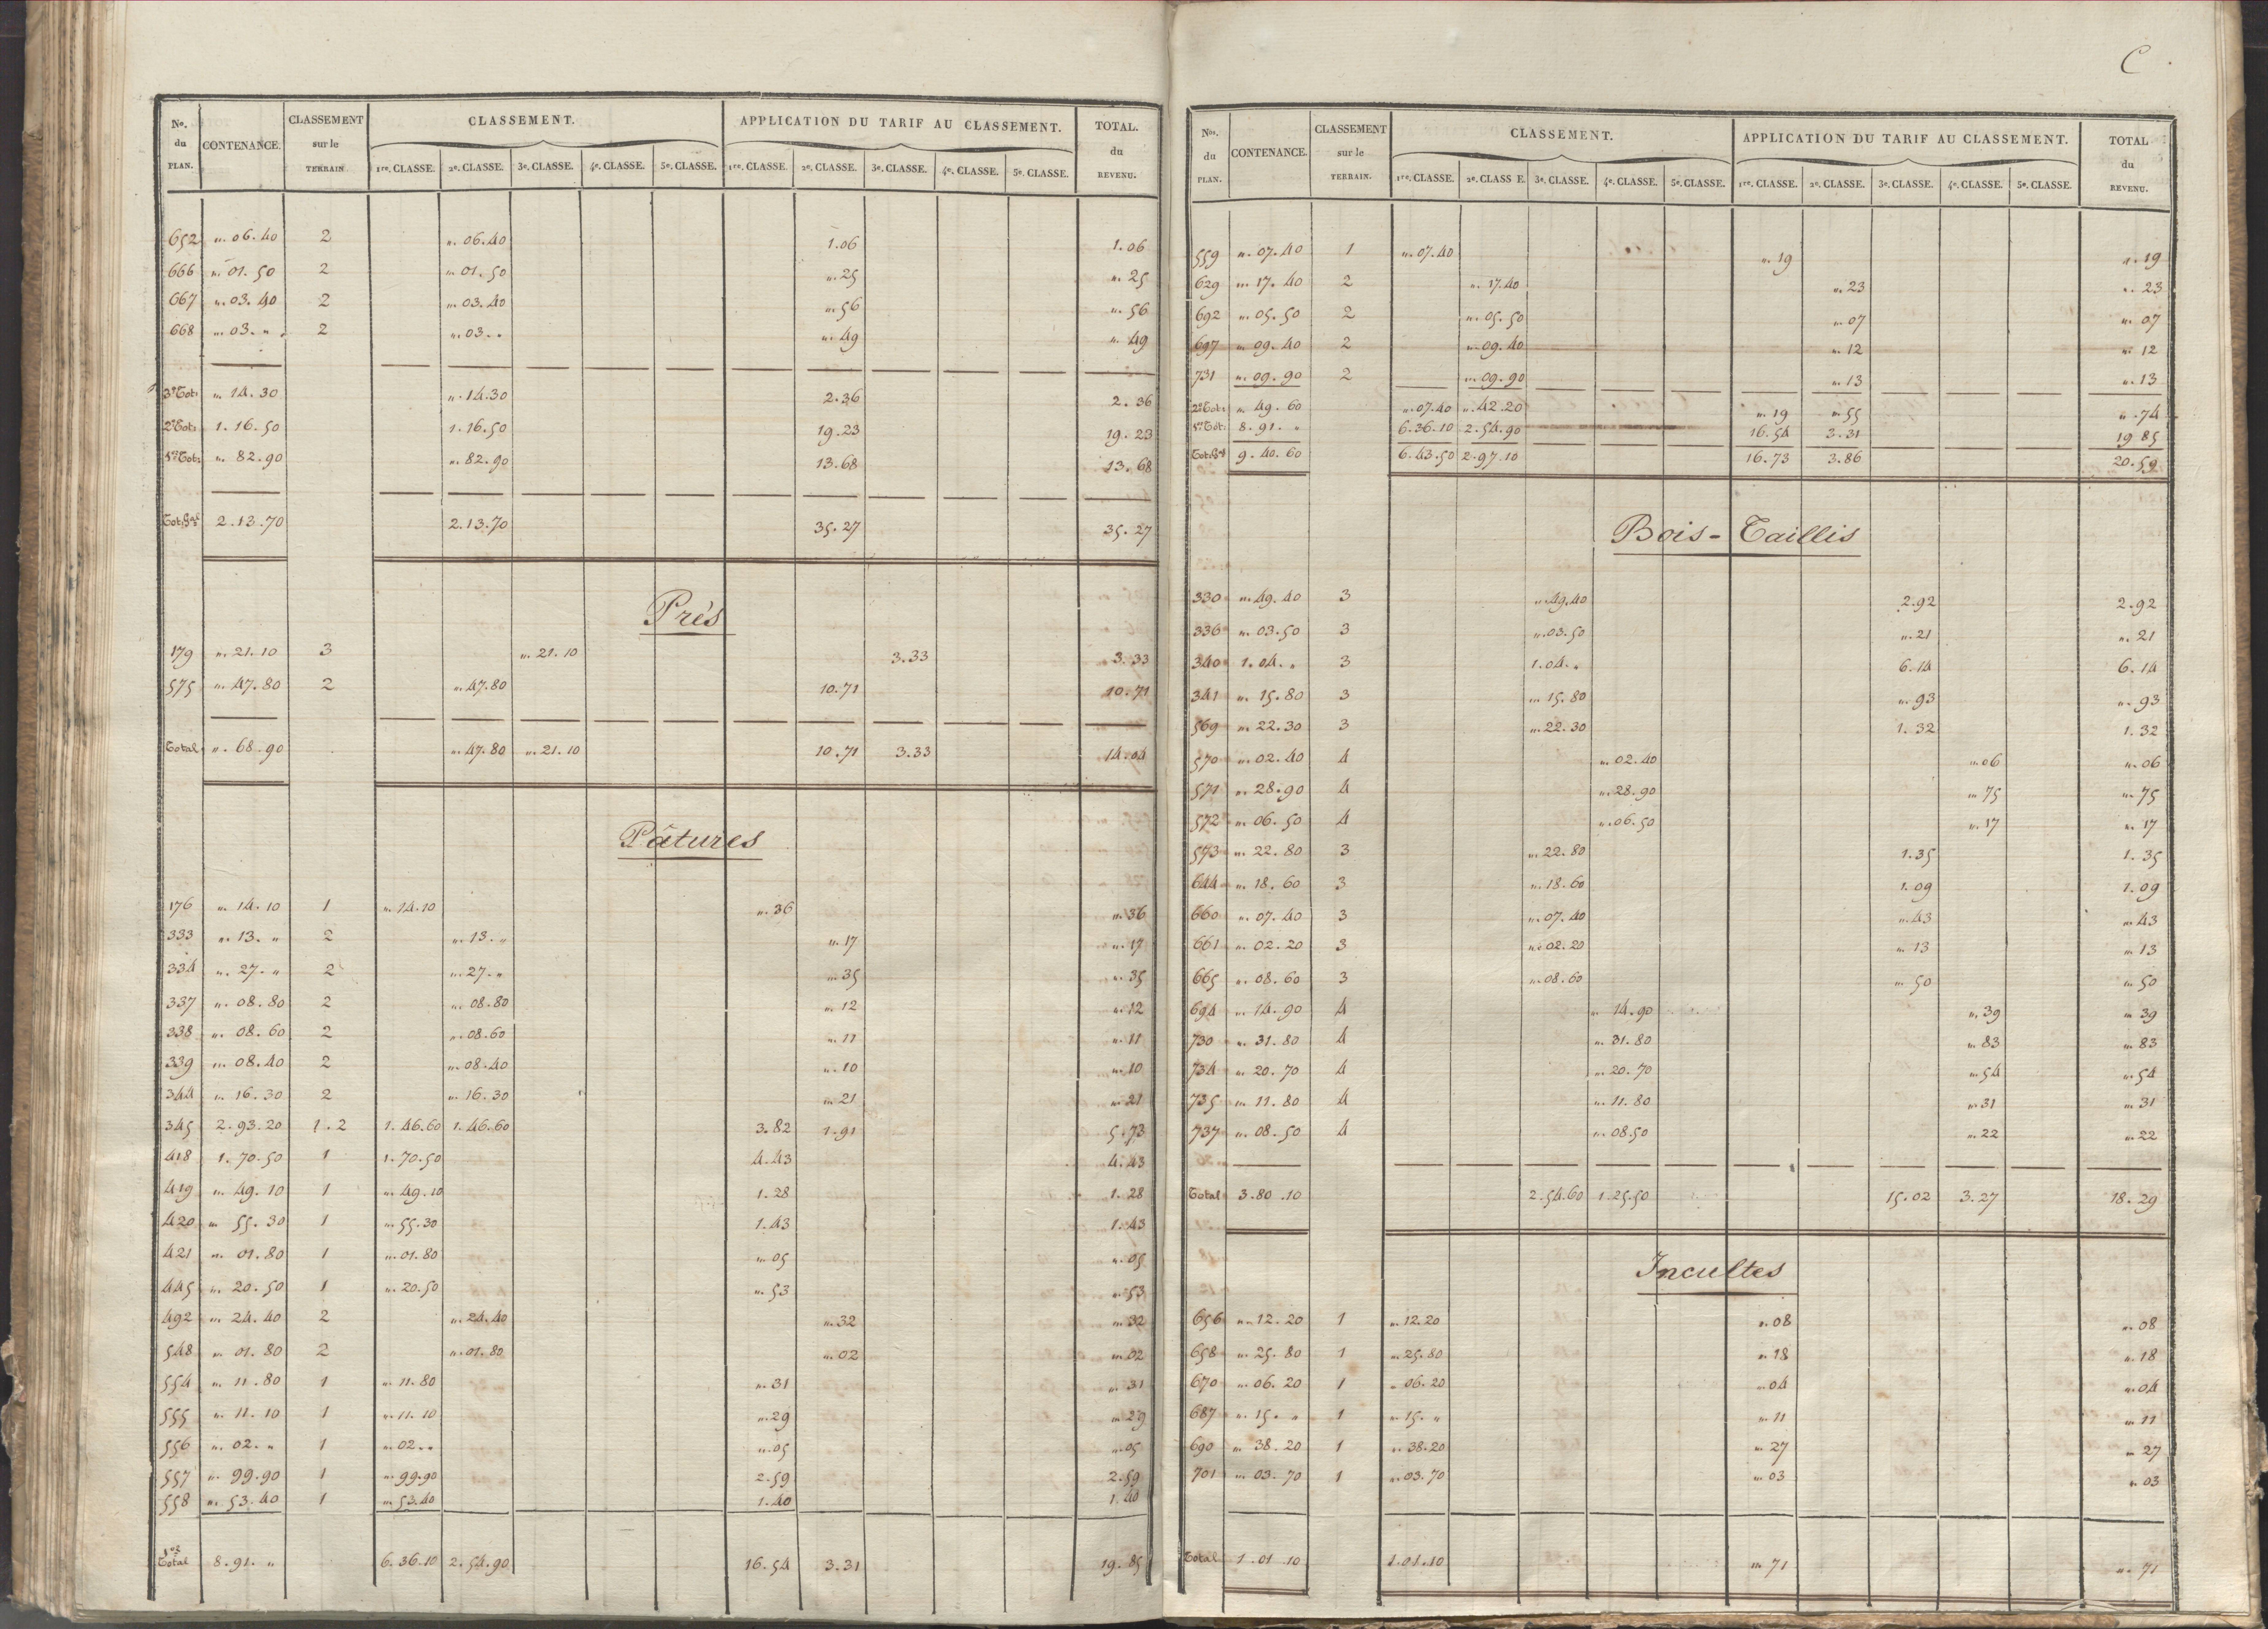 No. du PLAN. CONTENANCE. CLASSEMENT sur le TERRAIN CLASSEMENT. APPLICATION DU TARIF AU CLASSEMENT. TOTAL. du REVENU.
1re. CLASSE. 2e. CLASSE. 3e. CLASSE. 4e. CLASSE. 5e. CLASSE. 1re. CLASSE. 2e. CLASSE. 3e. CLASSE. 4e. CLASSE. 5e. CLASSE.
652 ". 06. 40 2 ". 06. 40 1. 06 1. 06
666 ". 01. 50 2 ". 01. 50 ". 25 ". 25
667 ". 03. 40 2 ". 03. 40 ". 56 ". 56
668 ". 03. " 2 ". 03. " ". 49 ". 49
3e Tot. ". 14. 30 ". 14. 30 2. 36 2. 36
2e Tot. 1. 16. 50 1. 16. 50 19. 23 19. 23
1er Tot. ". 82. 90 ". 82. 90 13. 68 13. 68
Tot. Gal 2. 13. 70 2. 13. 70 35. 27 35. 27
Prés
179 ". 21. 10 3 ". 21. 10 3. 33 3. 33
575 ". 47. 80 2 ". 47. 80 10. 71 10. 71
Total ". 68. 90 ". 47. 80 ". 21. 10 10. 71 3. 33 14. 04
Pâtures
176 ". 14. 10 1 ". 14. 10 ". 36 ". 36
333 ". 13. " 2 ". 13. " ". 17 ". 17
334 ". 27. " 2 ". 27. " ". 35 ". 35
337 ". 08. 80 2 ". 08. 80 ". 12 ". 12
338 ". 08. 60 2 ". 08. 60 ". 11 ". 11
339 ". 08. 40 2 ". 08. 40 ". 10 ". 10
344 ". 16. 30 2 ". 16. 30 ". 21 ". 21
345 2. 93. 20 1. 2 1. 46. 60 1. 46. 60 3. 82 1. 91 5. 73
418 1. 70. 50 1 1. 70. 50 4. 43 4. 43
419 ". 49. 10 1 ". 49. 10 1. 28 1. 28
420 ". 55. 30 1 ". 55. 30 1. 43 1. 43
421 ". 01. 80 1 ". 01. 80 ". 05 ". 05
445 ". 20. 50 1 ". 20. 50 ". 53 ". 53
492 ". 24. 40 2 ". 24. 40 ". 32 ". 32
548 ". 01. 80 2 ". 01. 80 ". 02 ". 02
554 ". 11. 80 1 ". 11. 80 ". 31 ". 31
555 ". 11. 10 1 ". 11. 10 ". 29 ". 29
556 ". 02. " 1 ". 02. " ". 05 ". 05
557 ". 99. 90 1 ". 99. 90 2. 59 2. 59
558 ". 53. 40 1 ". 53. 40 1. 40 1. 40
1er Total 8. 91. " 6. 36. 10 2. 54. 90 16. 54 3. 31 19. 85
C
Nos. du PLAN. CONTENANCE. CLASSEMENT sur le TERRAIN. CLASSEMENT. APPLICATION DU TARIF AU CLASSEMENT. TOTAL du REVENU.
1re. CLASSE. 2e. CLASS E. 3e. CLASSE. 4e. CLASSE. 5e. CLASSE. 1re. CLASSE. 2e. CLASSE. 3e. CLASSE. 4e. CLASSE. 5e. CLASSE.
559 ". 07. 40 1 ". 07. 40 ". 19 ". 19
629 ". 17. 40 2 ". 17. 40 ". 23 ". 23
692 ". 05. 50 2 ". 05. 50 ". 07 ". 07
697 ". 09. 40 2 ". 09. 40 ". 12 ". 12
731 ". 09. 90 2 ". 09. 90 ". 13 ". 13
2e Tot. ". 49. 60 ". 07. 40 ". 42. 20 ". 19 ". 55 ". 74
1er Tot. 8. 91. " 6. 36. 10 2. 54. 90 16. 54 3. 31 19 85
Tot. Gal 9. 40. 60 6. 43. 50 2. 97. 10 16. 73 3. 86 20. 59
Bois-Taillis
330 ". 49. 40 3 ". 49. 40 2. 92 2. 92
336 ". 03. 50 3 ". 03. 50 ". 21 ". 21
340 1. 04. " 3 1. 04. " 6. 14 6. 14
341 ". 15. 80 3 ". 15. 80 ". 93 ". 93
569 ". 22. 30 3 ". 22. 30 1. 32 1. 32
570 ". 02. 40 4 ". 02. 40 ". 06 ". 06
571 ". 28. 90 4 ". 28. 90 ". 75 ". 75
572 ". 06. 50 4 ". 06. 50 ". 17 ". 17
573 ". 22. 80 3 ". 22. 80 1. 35 1. 35
644 ". 18. 60 3 ". 18. 60 1. 09 1. 09
660 ". 07. 40 3 ". 07. 40 ". 43 ". 43
661 ". 02. 20 3 ". 02. 20 ". 13 ". 13
665 ". 08. 60 3 ". 08. 60 ". 50 ". 50
694 ". 14. 90 4 ". 14. 90 ". 39 ". 39
730 ". 31. 80 4 ". 31. 80 ". 83 ". 83
734 ". 20. 70 4 ". 20. 70 ". 54 ". 54
735 ". 11. 80 4 ". 11. 80 ". 31 ". 31
737 ". 08. 50 4 ". 08. 50 ". 22 ". 22
Total 3. 80. 10 2. 54. 60 1. 25. 50 15. 02 3. 27 18. 29
Incultes
656 ". 12. 20 1 ". 12. 20 ". 08 ". 08
658 ". 25. 80 1 ". 25. 80 ". 18 ". 18
670 ". 06. 20 1 ". 06. 20 ". 04 ". 04
687 ". 15. " 1 ". 15. " ". 11 ". 11
690 ". 38. 20 1 ". 38. 20 ". 27 ". 27
701 ". 03. 70 1 ". 03. 70 ". 03 ". 03
Total 1. 01. 10 1. 01. 10 ". 71 ". 71